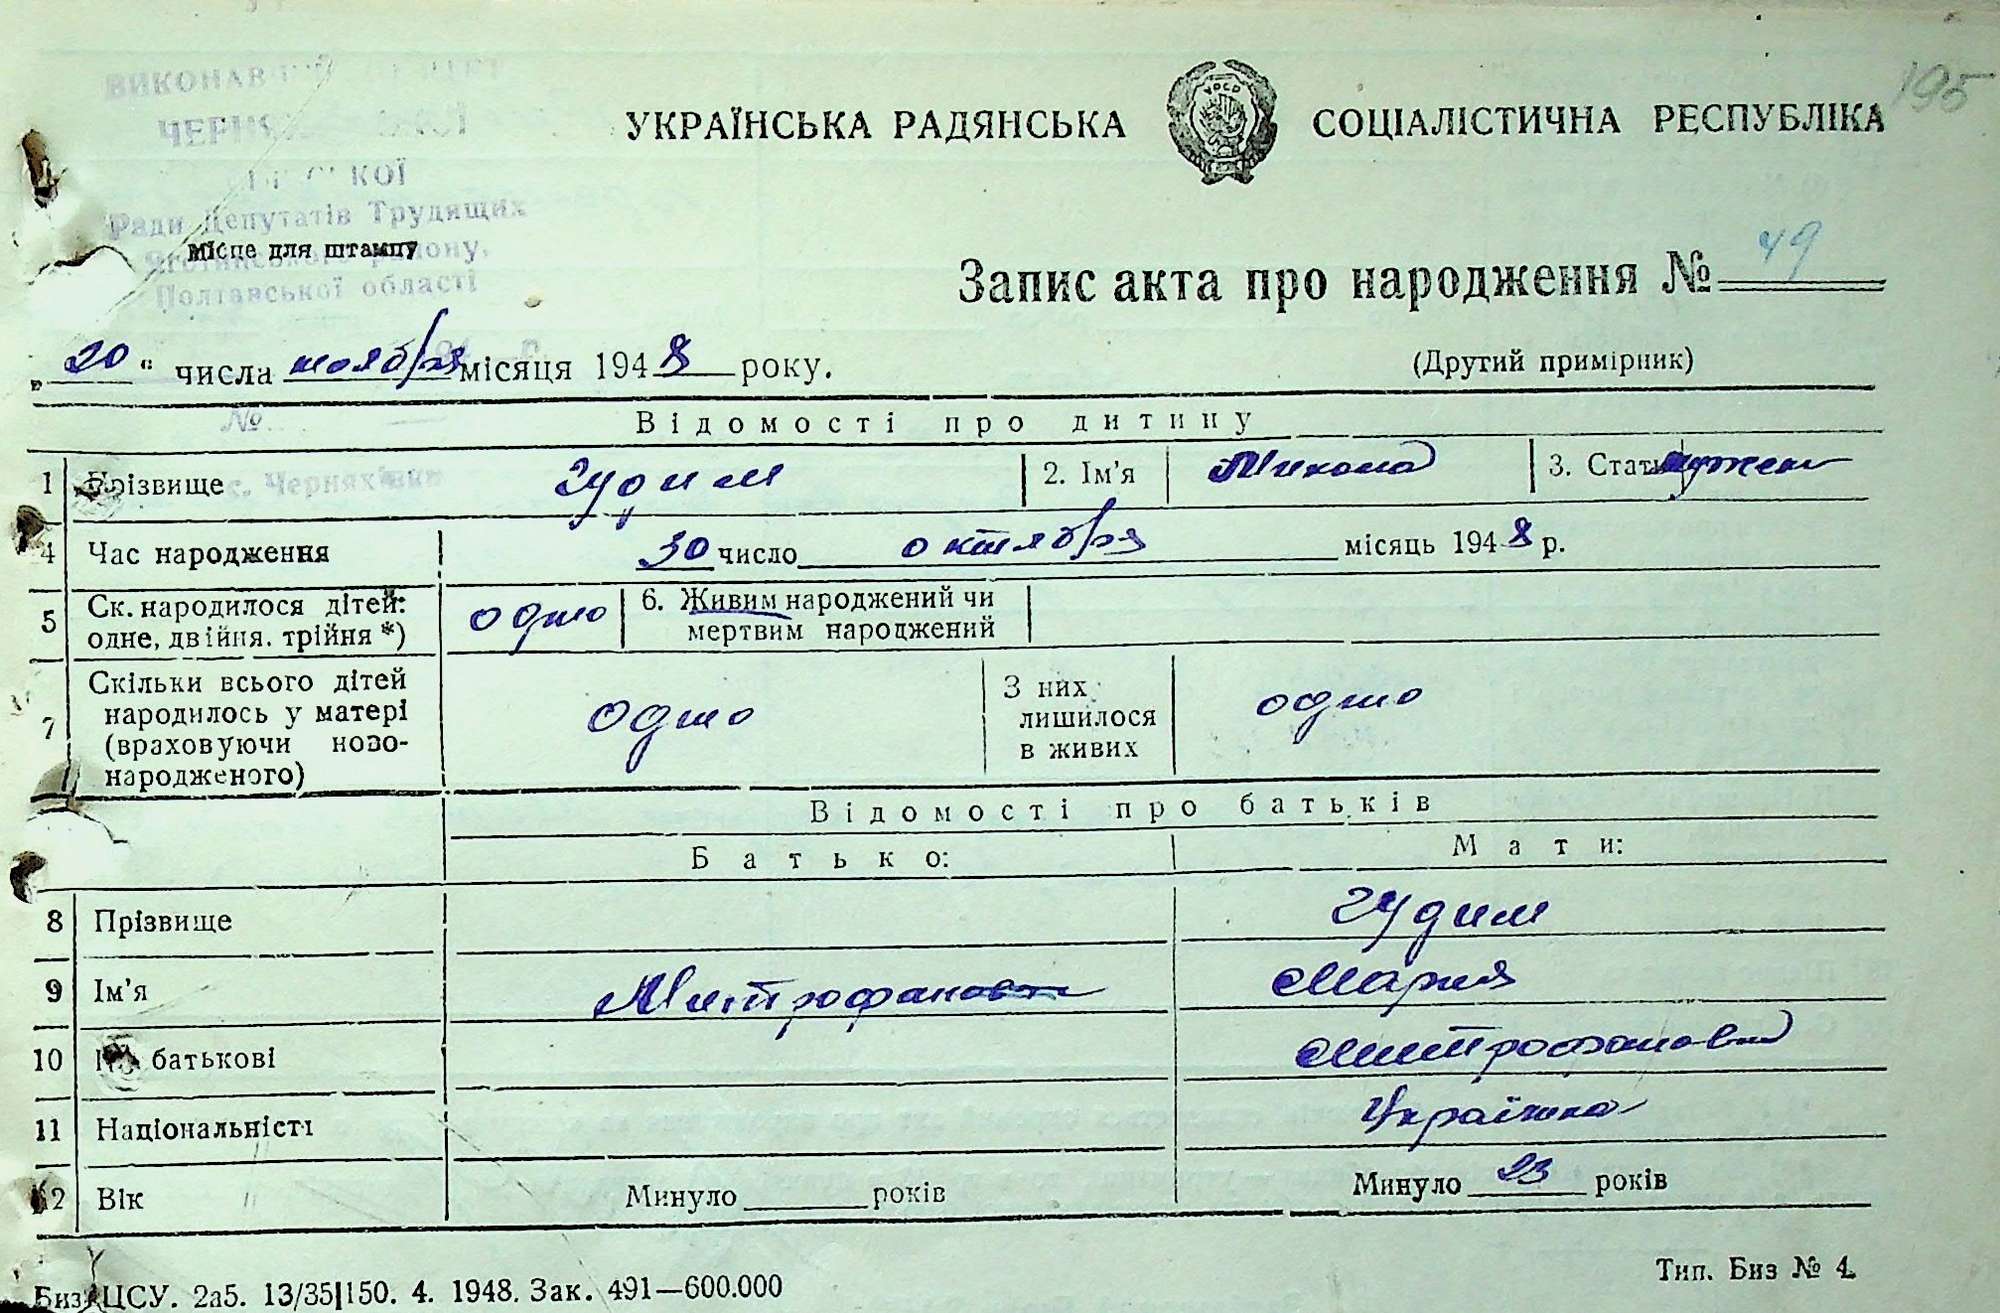 195
УКРАЇНСЬКА РАДЯНСЬКА СОЦІАЛІСТИЧНА РЕСПУБЛІКА
УРСР
ЧЕРНЯ
Ради Депутатів Трудящих
Яготинського району,
Полтавської області
Місце для штампу
Запис акта про народження № 49
„ 20 “ числа ноября місяця 1948 року.
(Другий примірник)
№
с. Черняхівка
Відомості про дитину
1 Прізвище Гудим 2. Ім'я Микола 3. Стать муж
4 Час народження 30 число октября місяць 1948 р.
5 Ск. народилося дітей: одно 6. Живим народжений чи
одне, двійня, трійня *) мертвим народжений
7 Скільки всього дітей
народилось у матері
(враховуючи ново-
народженого) одно З них
лишилося
в живих одно
Відомості про батьків
Батько: Мати:
8 Прізвище Гудим
9 Ім'я Митрофанов Мария
10 По батькові Митрофановна
11 Національність Українка
12 Вік Минуло років Минуло 23 років
Биз. ЦСУ. 2а5. 13/35|150. 4. 1948. Зак. 491—600.000
Тип. Биз № 4